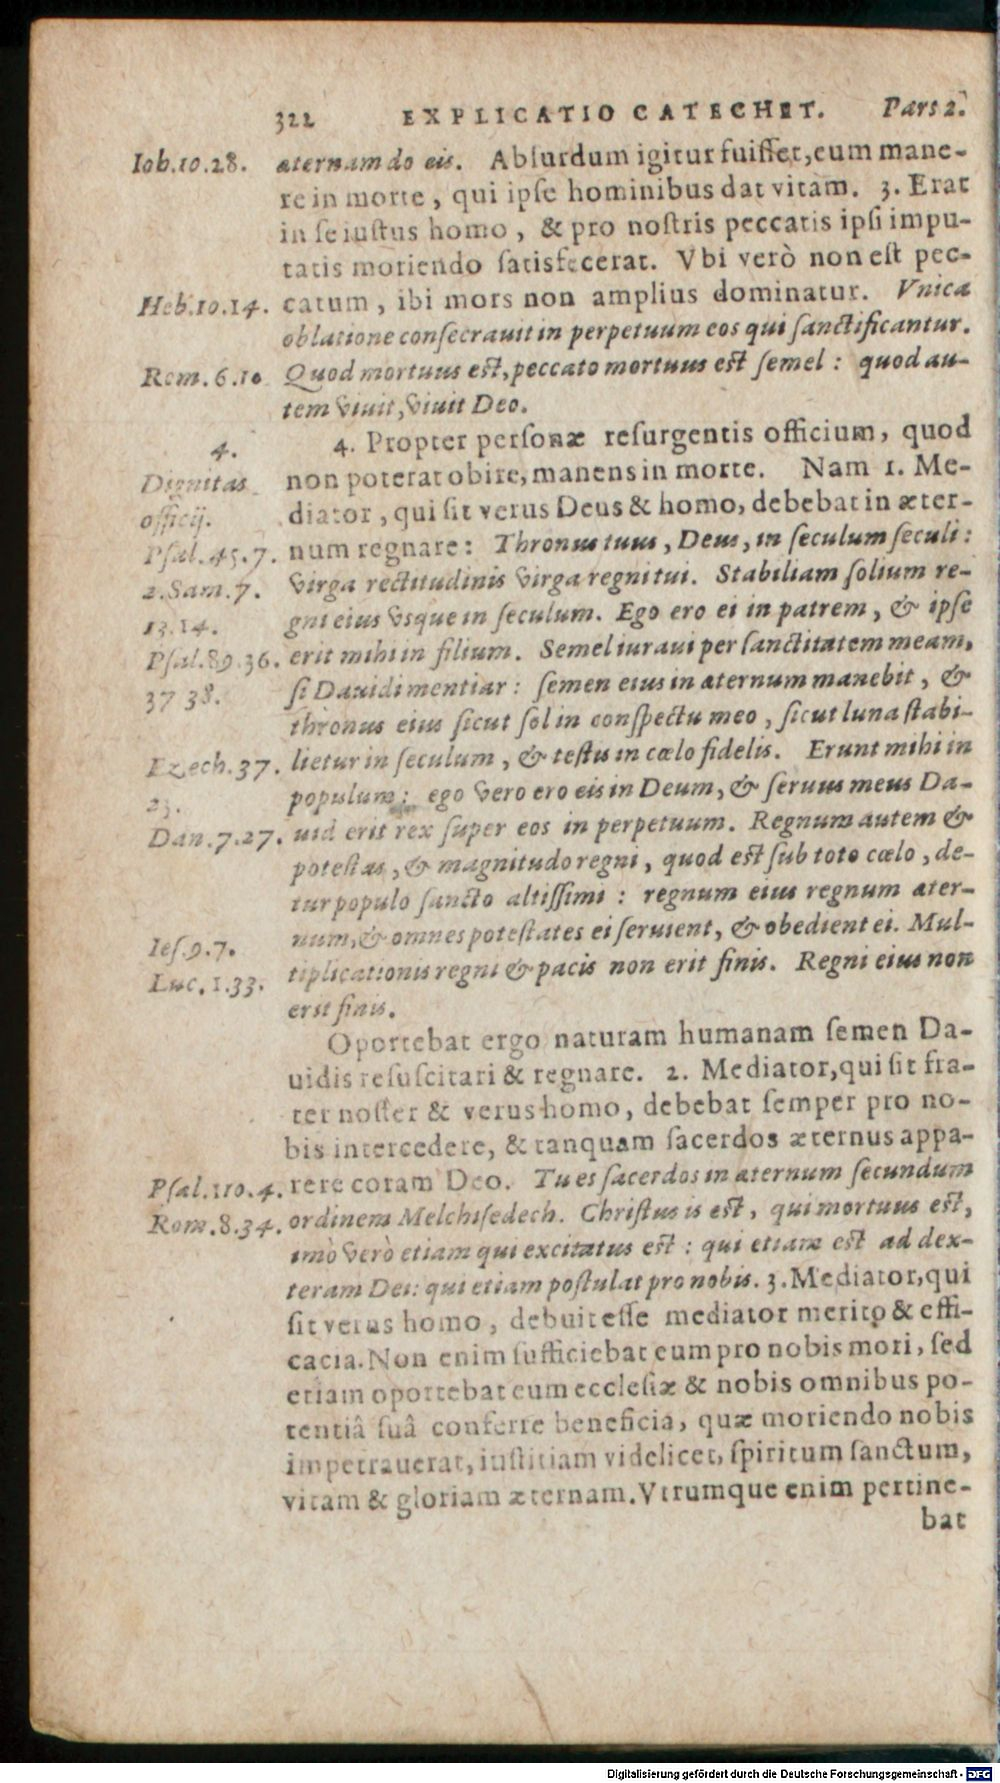 322 EXPLICATIO CATECHET. Pars 2.
Ioh.10.28. æternam do eis. Absurdum igitur fuisset, eum mane-
re in morte, qui ipse hominibus dat vitam. 3. Erat
in se iustus homo, & pro nostris peccatis ipsi impu-
tatis moriendo satisfecerat. Vbi verò non est pec-
Heb.10.14. catum, ibi mors non amplius dominatur. Vnica
oblatione consecrauit in perpetuum eos qui sanctificantur.
Rom.6.10 Quod mortuus est, peccato mortuus est semel: quod au-
tem viuit, viuit Deo.
4. 4. Propter personæ resurgentis officium, quod
Dignitas non poterat obire, manens in morte. Nam 1. Me-
officij. diator, qui sit verus Deus & homo, debebat in æter-
Psal.45.7. num regnare: Thronus tuus, Deus, in seculum seculi:
2.Sam.7. virga rectitudinis virga regni tui. Stabiliam solium re-
13.14. gni eius vsque in seculum. Ego ero ei in patrem, & ipse
Psal.89.36. erit mihi in filium. Semel iuraui per sanctitatem meam,
37 38. si Dauidi mentiar: semen eius in æternum manebit, &
thronus eius sicut sol in conspectu meo, sicut luna stabi-
Ezech.37. lietur in seculum, & testis in cœlo fidelis. Erunt mihi in
23. populum: ego vero ero eis in Deum, & seruus meus Da-
Dan.7.27. uid erit rex super eos in perpetuum. Regnum autem &
potestas, & magnitudo regni, quod est sub toto cœlo, de-
tur populo sancto altissimi: regnum eius regnum æter-
num, & omnes potestates ei seruient, & obedient ei. Mul-
Ies.9.7. tiplicationis regni & pacis non erit finis. Regni eius non
Luc.1.33. erit finis.
Oportebat ergo naturam humanam semen Da-
uidis resuscitari & regnare. 2. Mediator, qui sit fra-
ter noster & verus homo, debebat semper pro no-
bis intercedere, & tanquam sacerdos æternus appa-
Psal.110.4. rere coram Deo. Tu es sacerdos in æternum secundum
Rom.8.34. ordinem Melchisedech. Christus is est, qui mortuus est,
imò verò etiam qui excitatus est: qui etiam est ad dex-
teram Dei: qui etiam postulat pro nobis. 3. Mediator, qui
sit verus homo, debuit esse mediator merito & effi-
cacia. Non enim sufficiebat eum pro nobis mori, sed
etiam oportebat eum ecclesiæ & nobis omnibus po-
tentiâ suâ conferre beneficia, quæ moriendo nobis
impetrauerat, iustitiam videlicet, spiritum sanctum,
vitam & gloriam æternam. Vtrumque enim pertine-
bat
Digitalisierung gefördert durch die Deutsche Forschungsgemeinschaft - DFG